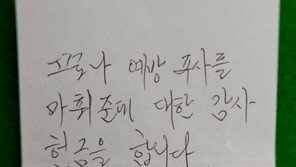 코로나 예방 주사를
마취준데 대한 감사
헌금을 합니다